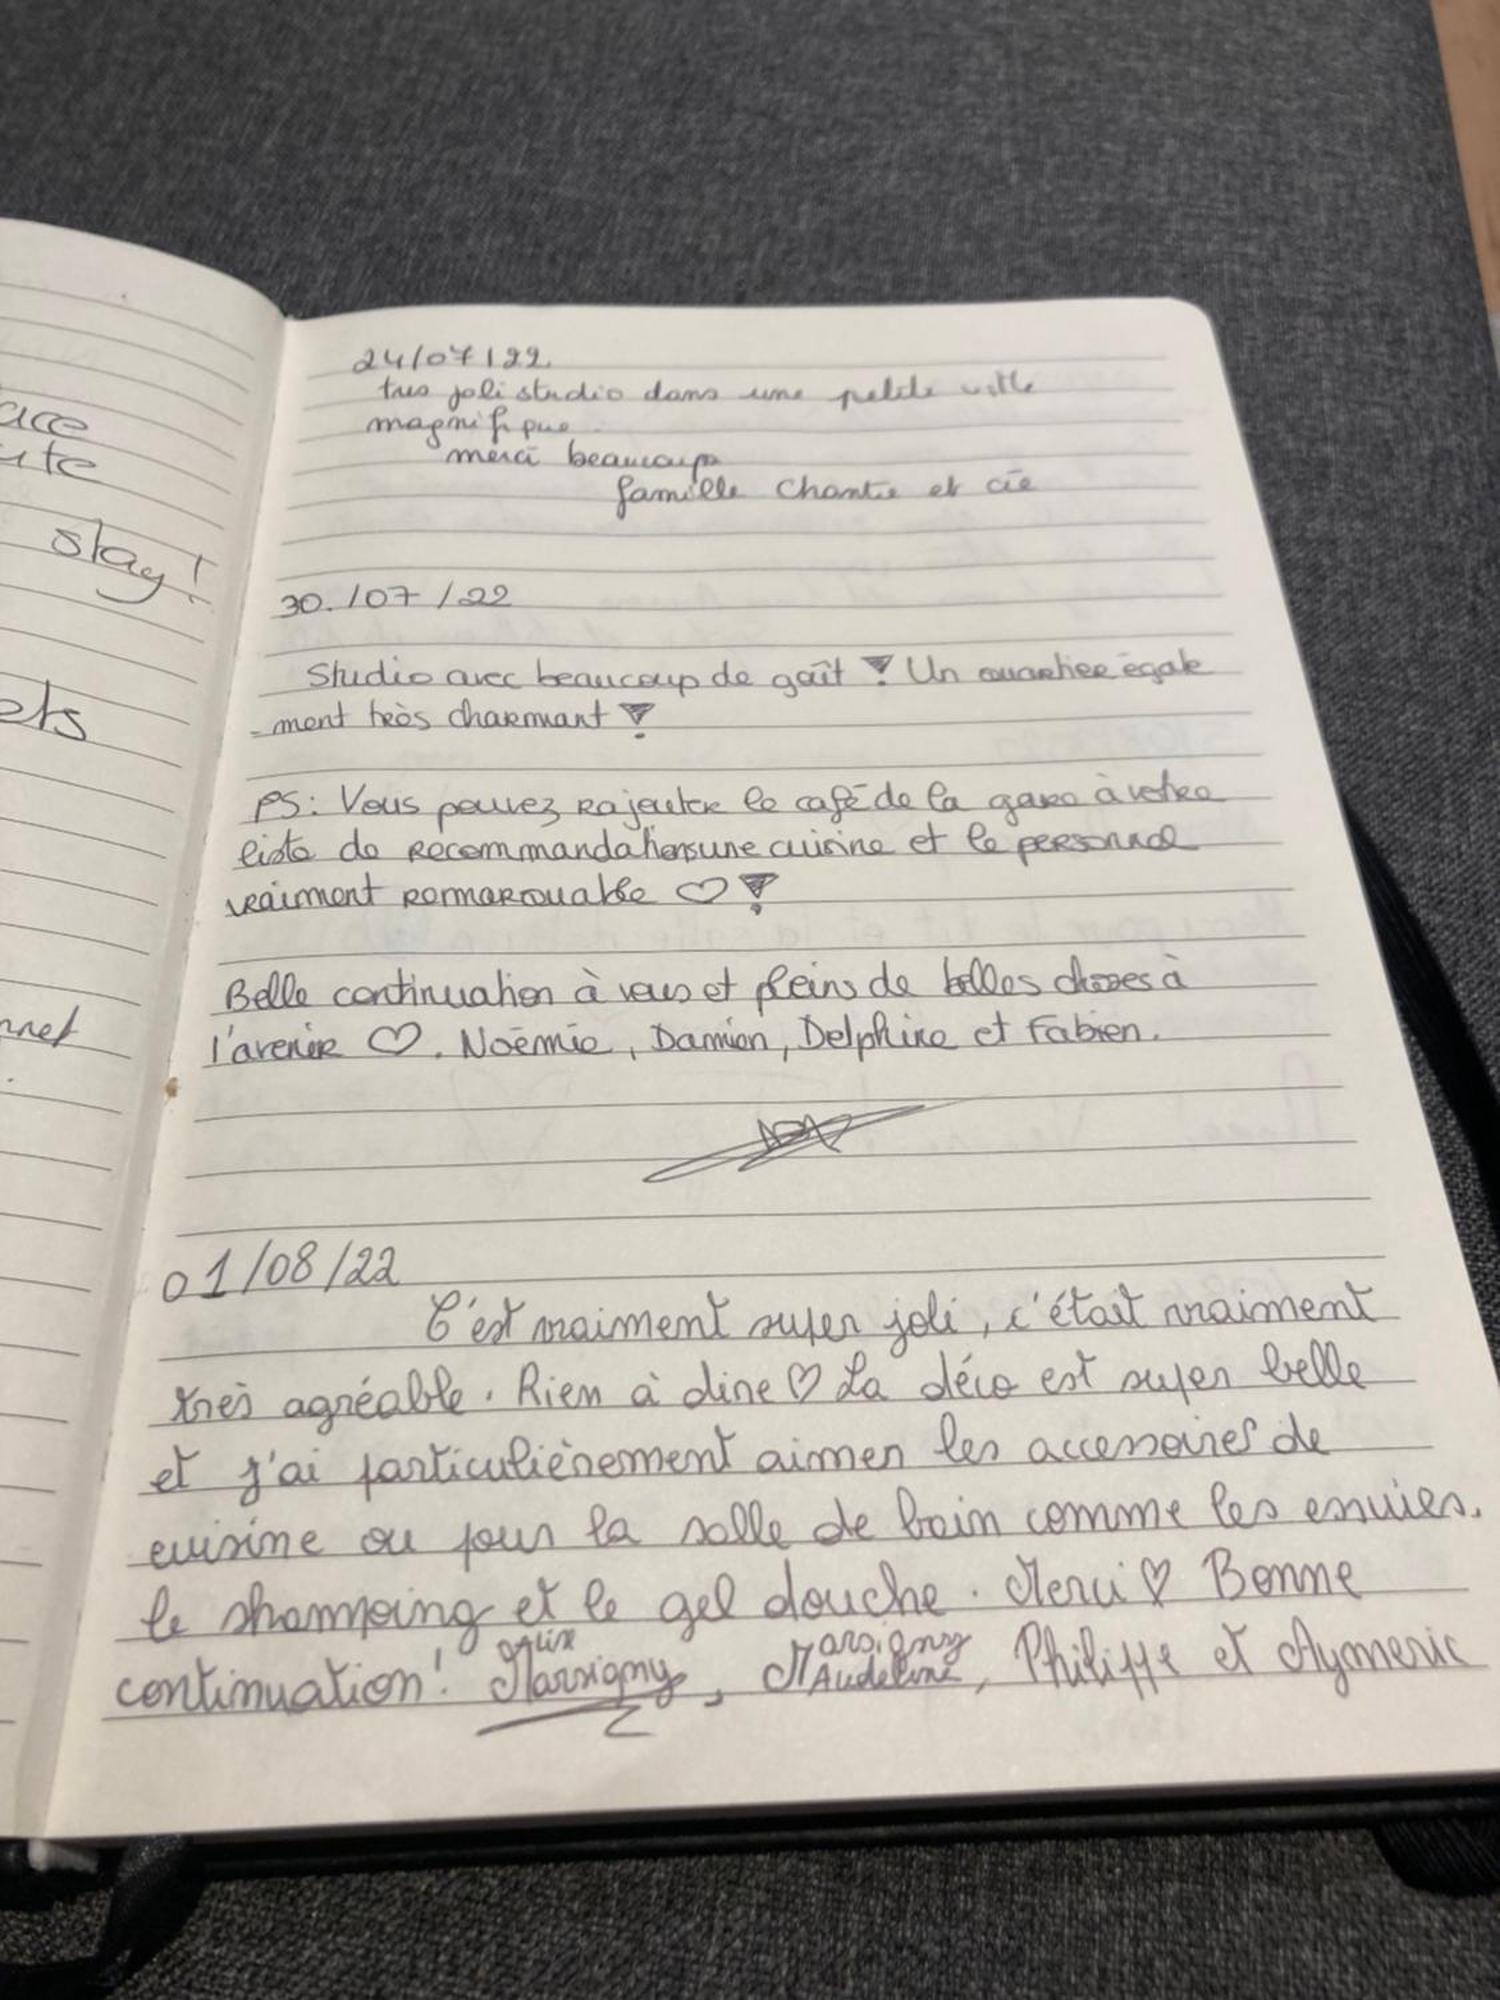 ace
ute
stay!
ets
nnet
24/07/22.
tres joli studio dans une petite ville
magnifique.
merci beaucoup
famille Chantie et cie
30./07/22
Studio avec beaucoup de gaît ! Un quartier égale
-ment très charmant !
PS: Vous pouvez rajouter le café de la gare à votre
liste de recommandations une cuisine et le personnel
vraiment remarquable ♡ !
Belle continuation à vous et pleins de belles choses à
l'avenir ♡. Noémie, Damien, Delphine et Fabien.
01/08/22
C'est vraiment super joli, c'était vraiment
très agréable. Rien à dire ♡ La déco est super belle
et j'ai particulièrement aimer les accessoires de
cuisine ou pour la salle de bain comme les essuies.
le shampoing et le gel douche. Merci ♡ Bonne
continuation! Alix Marsigny, Marsigny Audeline, Philippe et Aymeric